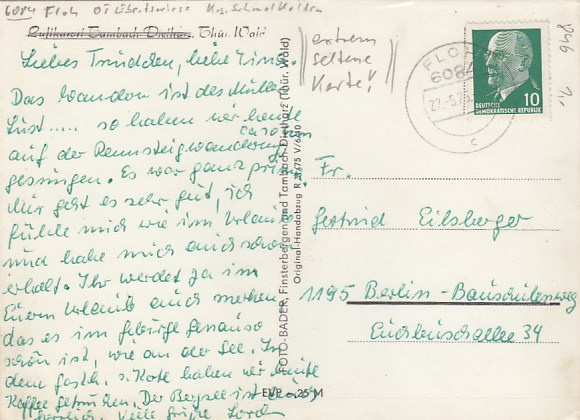 6084 Floh OT Kr. Schmalkalden
Luftkurort Tambach-Dietharz, Thür. Wald
Liebes Trudchen, liebe
Das Wandern ist des Müllers
Lust..... so haben wir heute
auf der Rennsteigwanderung
ca. 10 km
gesungen. Es war ganz prima.
Mir geht es sehr gut, ich
fühle mich wie im Urlaub
und habe mich auch schon
erholt. Ihr werdet ja im
Eurem Urlaub auch merken,
das es im Gebirge genauso
schön ist, wie an der See. In
dem Gasth. z. Kote haben wir heute
Kaffee getrunken. Der Bergsee ist
Viele Grüße
extrem
seltene
Karte!
FOTO-BADER, Finsterbergen und Tambach-Dietharz (Thür. Wald)
Original-Handabzug R 21/75 V/6/10
EVP -,25 M
FLOH
6084
27.-5.75
c
DEUTSCHE
DEMOKRATISCHE REPUBLIK
10
Fr.
Gertrud Eilsberger
1195 Berlin-Baumschulenweg
Eichbuschallee 34